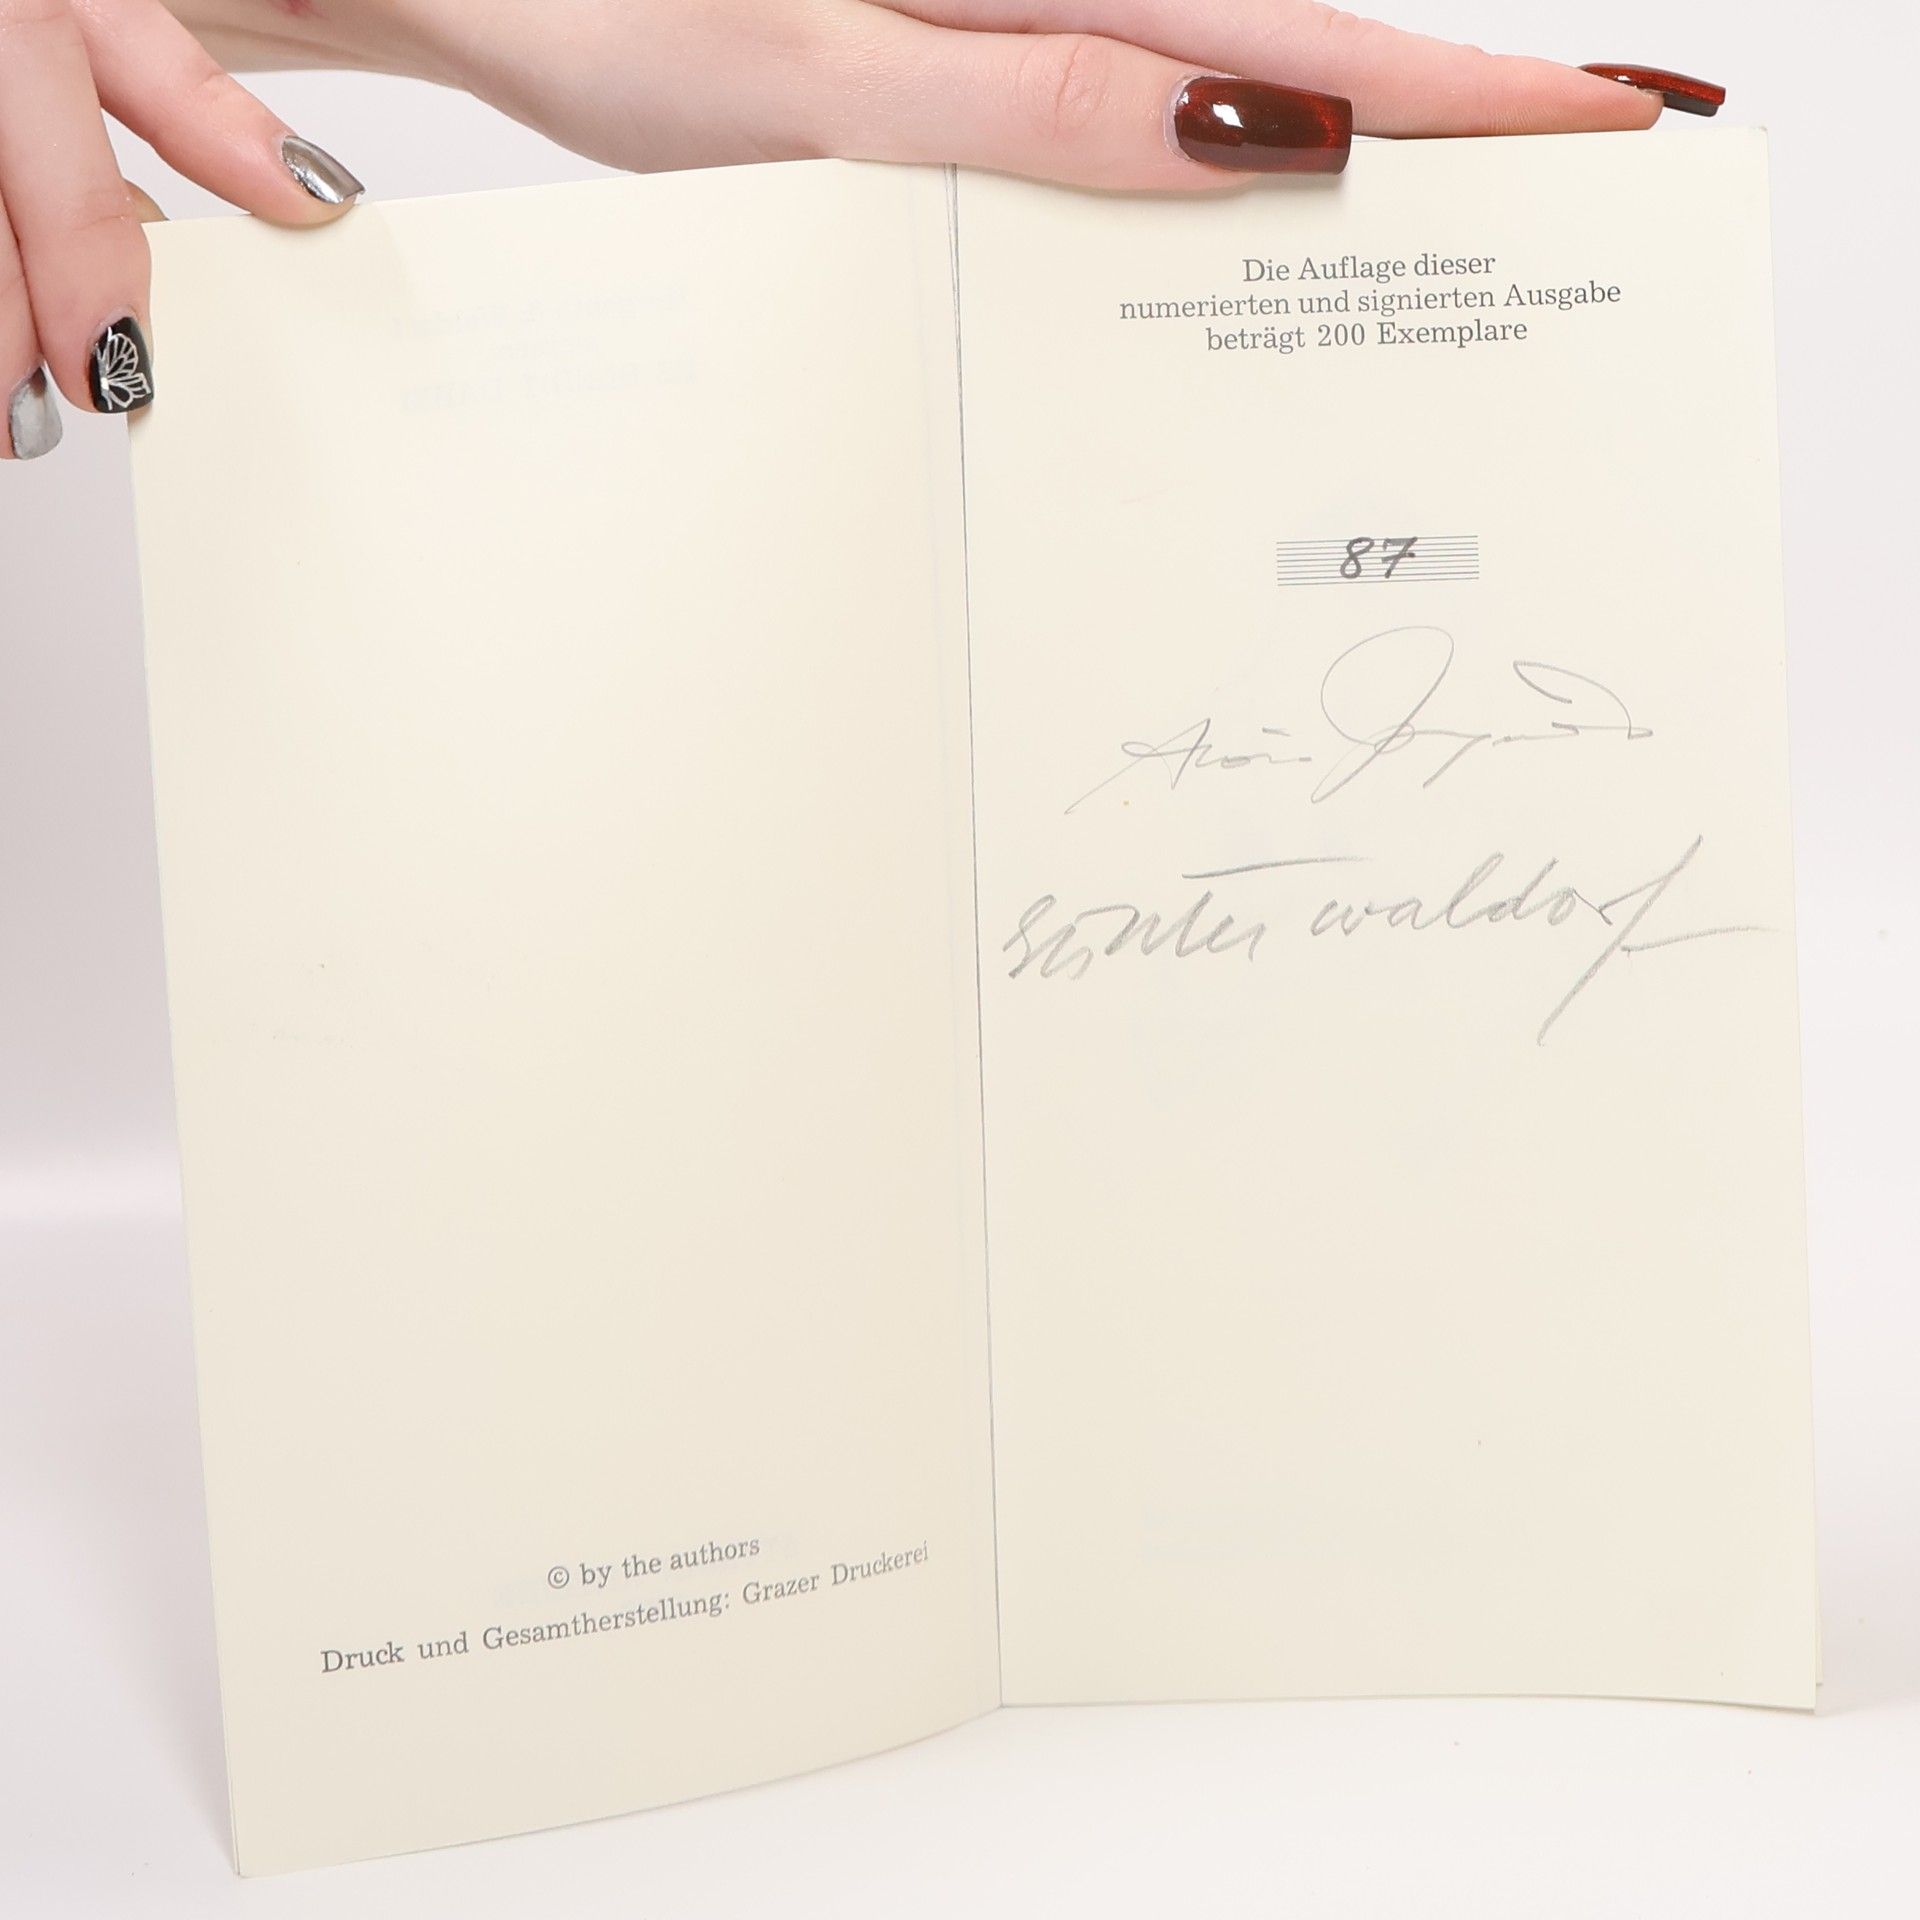 © by the authors
Druck und Gesamtherstellung: Grazer Druckerei
Die Auflage dieser
numerierten und signierten Ausgabe
beträgt 200 Exemplare
87
Günter Waldorf